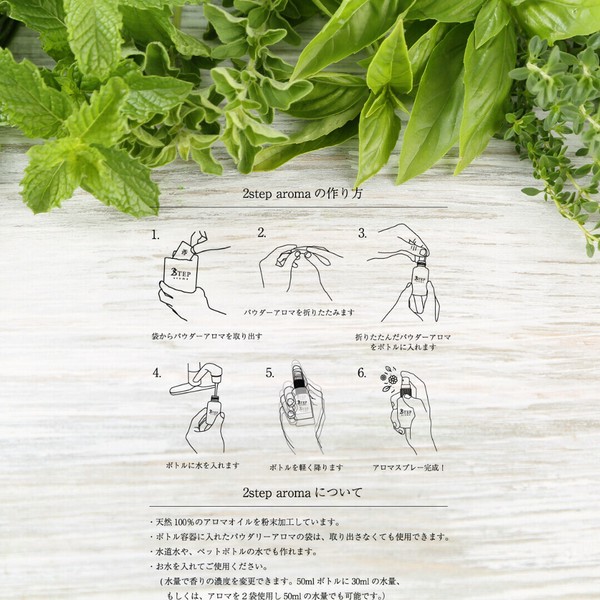 2step aroma の作り方
1.
2.
3.
2STEP
aroma
2STEP
袋からパウダーアロマを取り出す
パウダーアロマを折りたたみます
折りたたんだパウダーアロマ
をボトルに入れます
4.
5.
6.
2STEP
2STEP
2STEP
ボトルに水を入れます
ボトルを軽く降ります
アロマスプレー完成！
2step aroma について
・天然 100%のアロマオイルを粉末加工しています。
・ボトル容器に入れたパウダリーアロマの袋は、取り出さなくても使用できます。
・水道水や、ペットボトルの水でも作れます。
・お水を入れてご使用ください。
（水量で香りの濃度を変更できます。50ml ボトルに 30ml の水量、
もしくは、アロマを 2 袋使用し 50ml の水量でも可能です。）